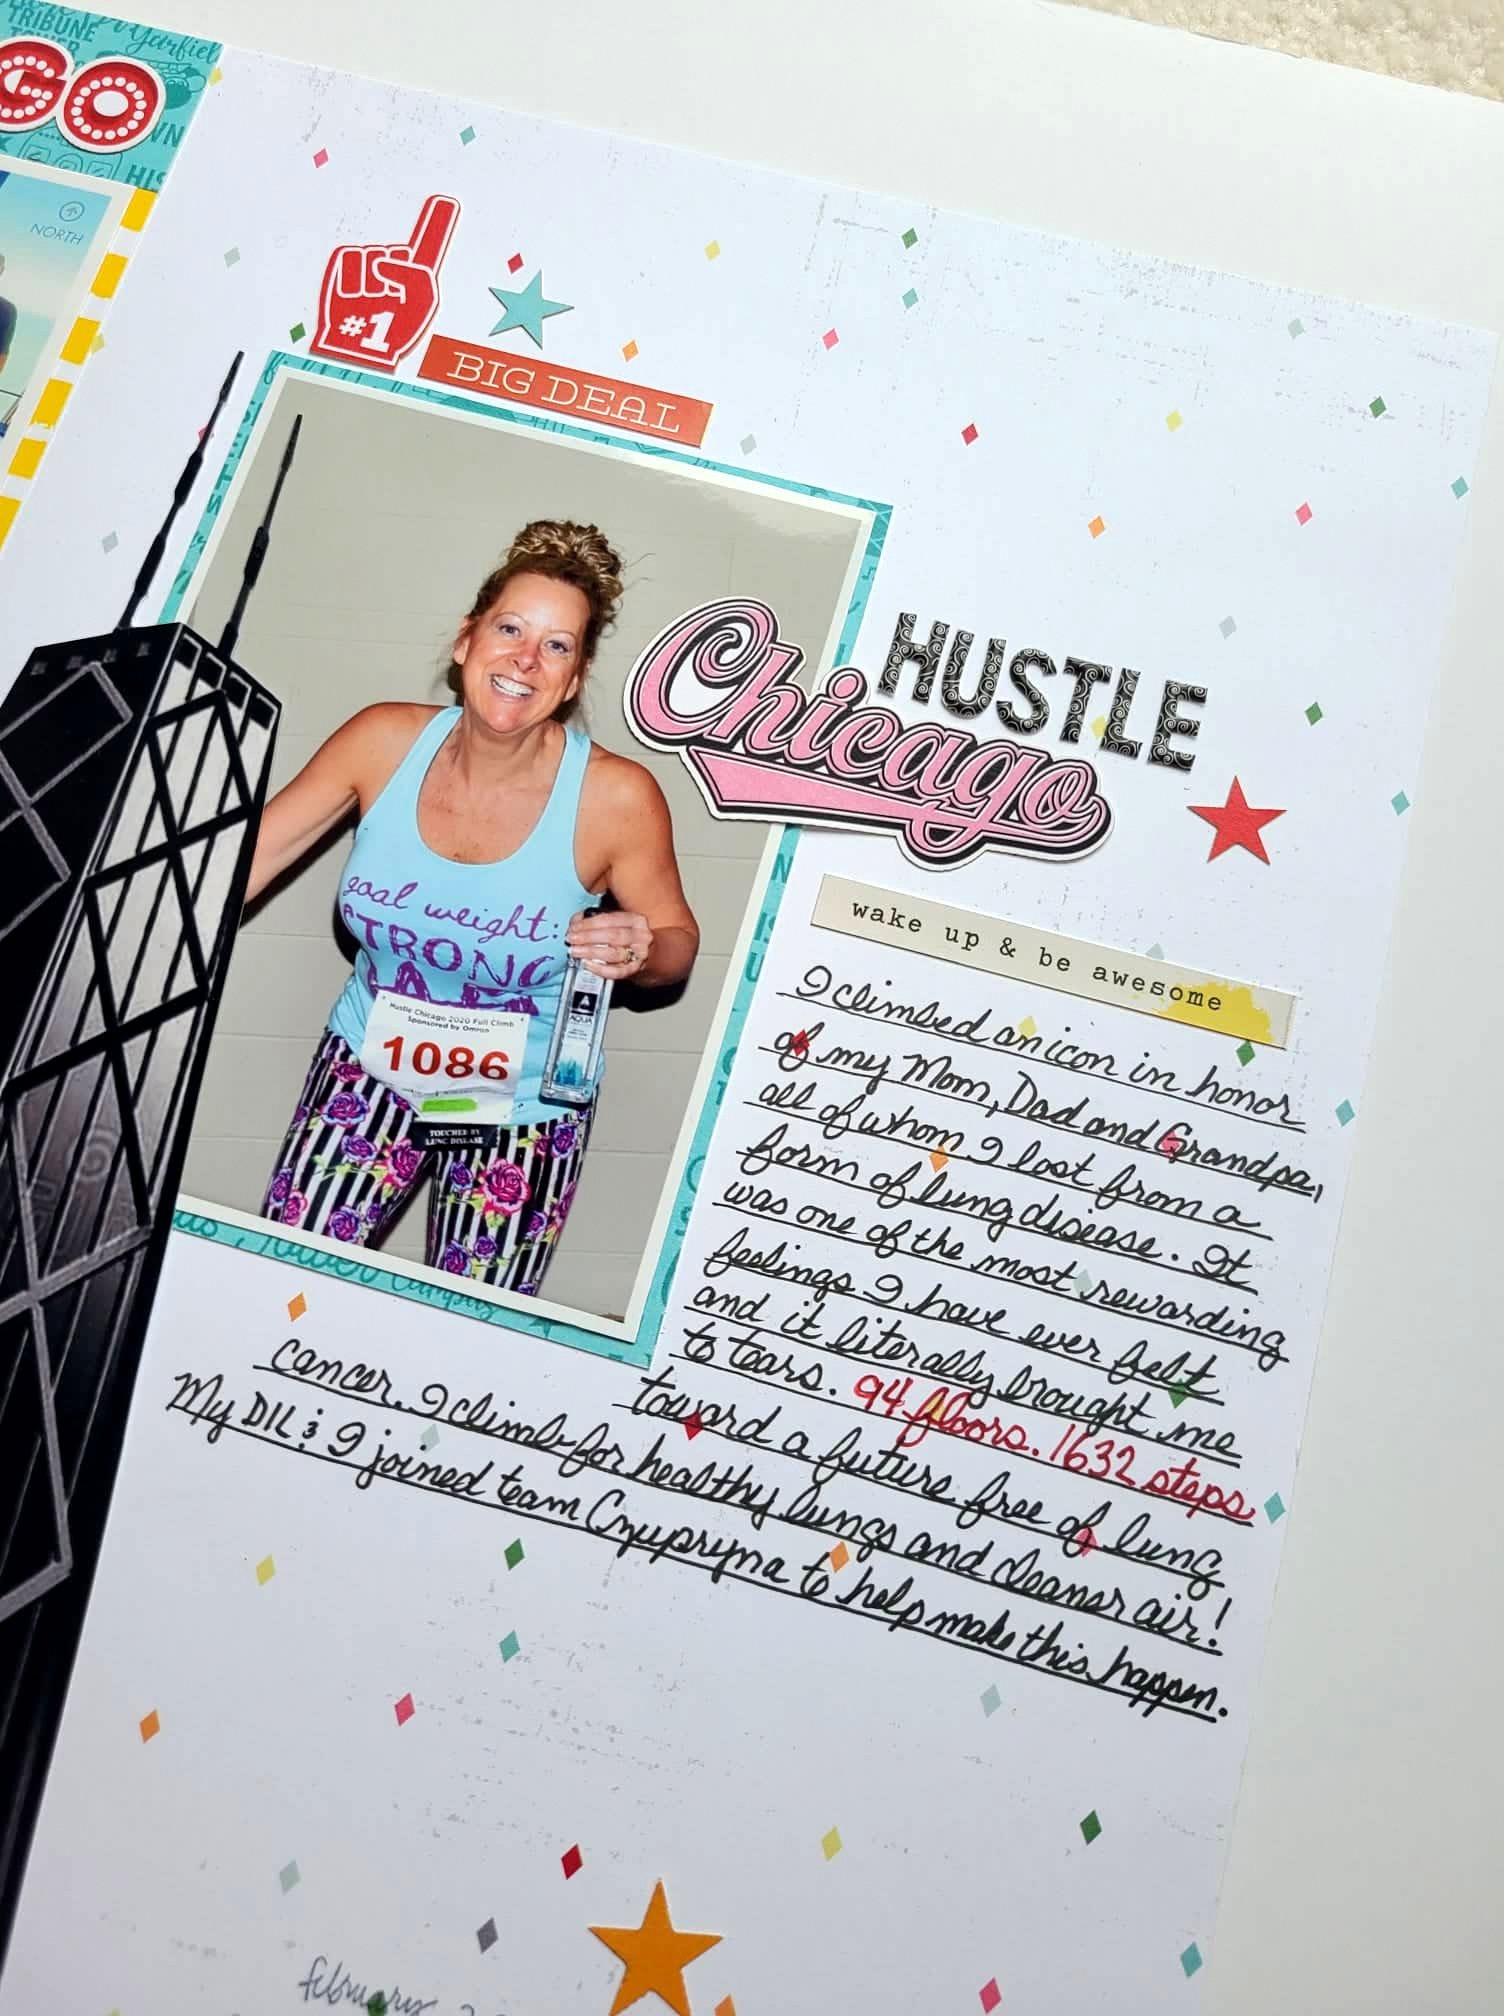 TRIBUNE
TOWER
GO
HIS
NORTH
#1
BIG DEAL
HUSTLE
Chicago
goal weight:
STRONG
Hustle Chicago 2020 Full Climb
Sponsored by Omron
1086
TOUCHED BY
LUNG DISEASE
AQUA
wake up & be awesome
I climbed an icon in honor
of my Mom, Dad and Grandpa,
all of whom I lost from a
form of lung disease. It
was one of the most rewarding
feelings I have ever felt
and it literally brought me
to tears. 94 floors. 1632 steps
toward a future free of lung
cancer. I climb for healthy lungs and cleaner air!
My DIL & I joined team Czupryna to help make this happen.
february